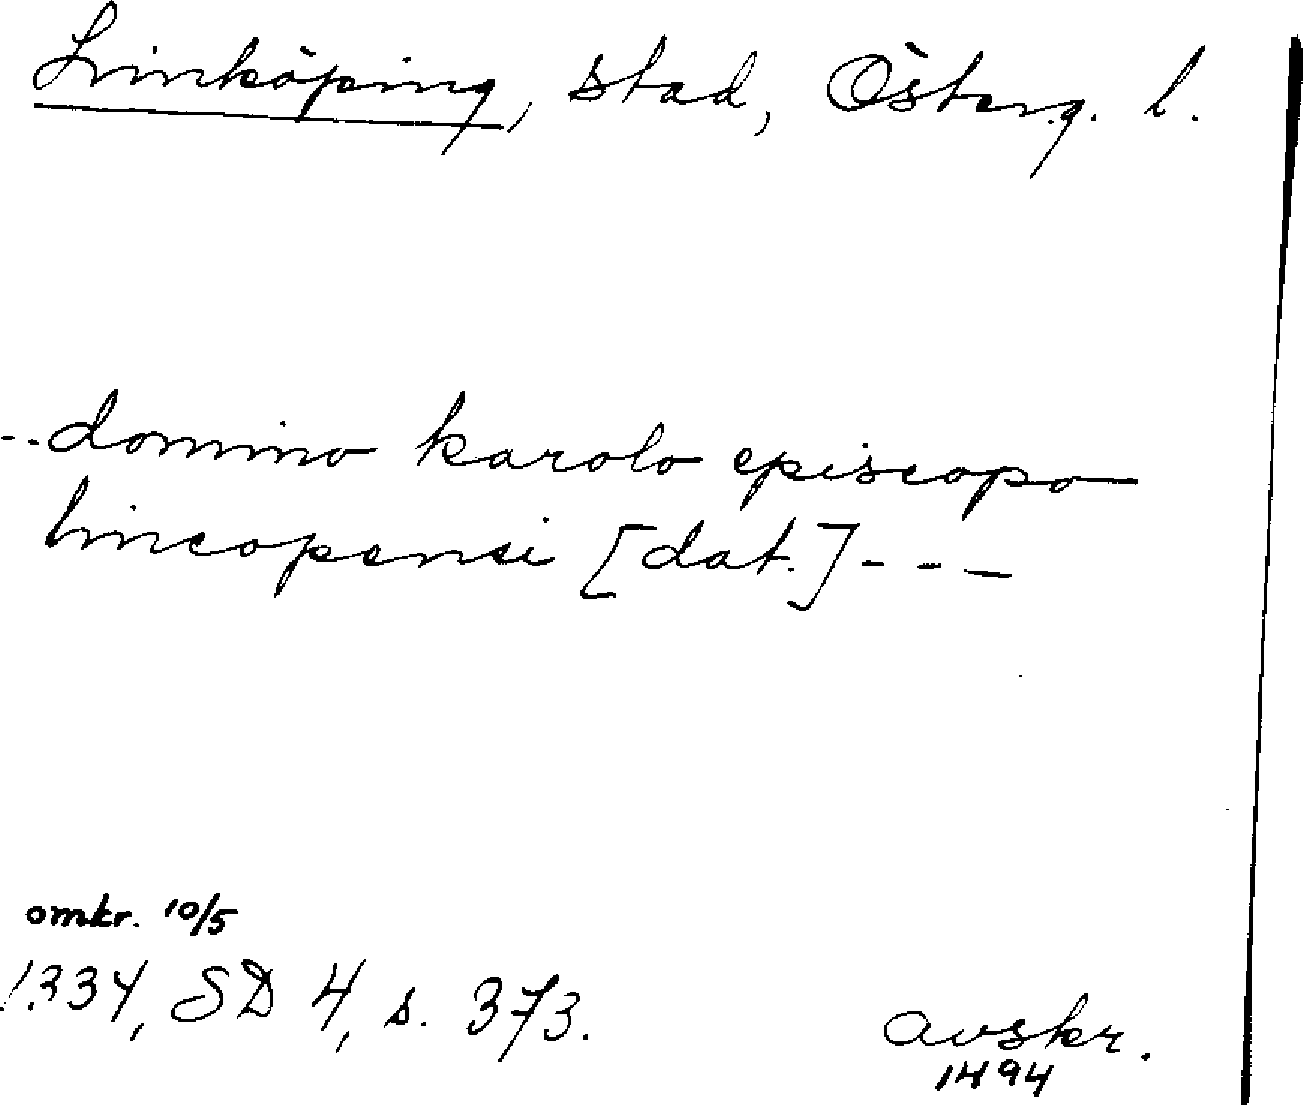 Linköping, stad, Österg. l.
--domino karolo episcopo
lincopensi [dat.]---
omkr. 10/5
1334, SD 4, s. 373.
avskr.
1494